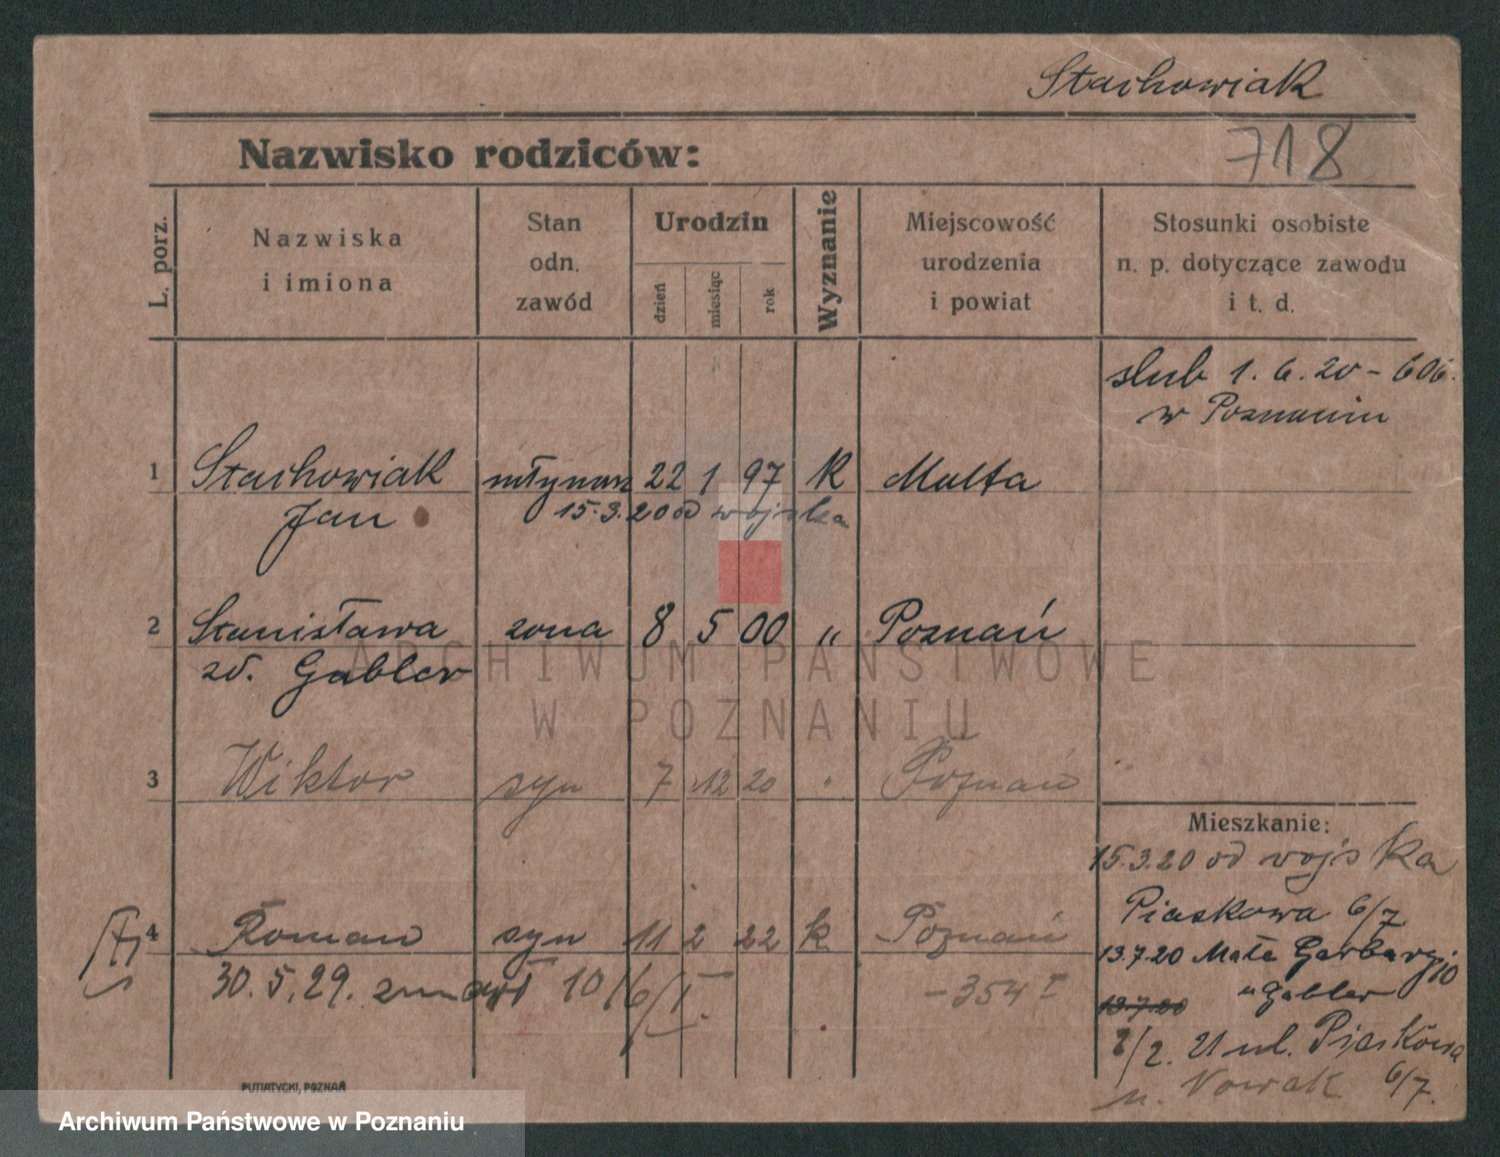 Stachowiak
718
Nazwisko rodziców:
L. porz.
Nazwiska
i imiona
Stan
odn.
zawód
Urodzin
dzień
miesiąc
rok
Wyznanie
Miejscowość
urodzenia
i powiat
Stosunki osobiste
n. p. dotyczące zawodu
i t. d.
slub 1. 6. 20 - 606.
w Poznaniu
1 Stachowiak młynarz 22 1 97 k Malta
Jan 15.3.20 od wojska
2 Stanisława zona 8 5 00 " Poznań
zd. Gabler
3 Wiktor syn 7 12 20 " Poznań
Mieszkanie:
15.3.20 od wojska
Piaskowa 6/7
4 Roman syn 11 2 22 k Poznań
13.7.20 Małe Garbary 10
30.5.29. zmarł 10/6/I. - 354 I
u Gabler
13.7.20
2/2. 21 ul. Piaskowa
6/7.
u. Nowak
PUTIATYCKI, POZNAŃ
ARCHIWUM PAŃSTWOWE
W POZNANIU
Archiwum Państwowe w Poznaniu